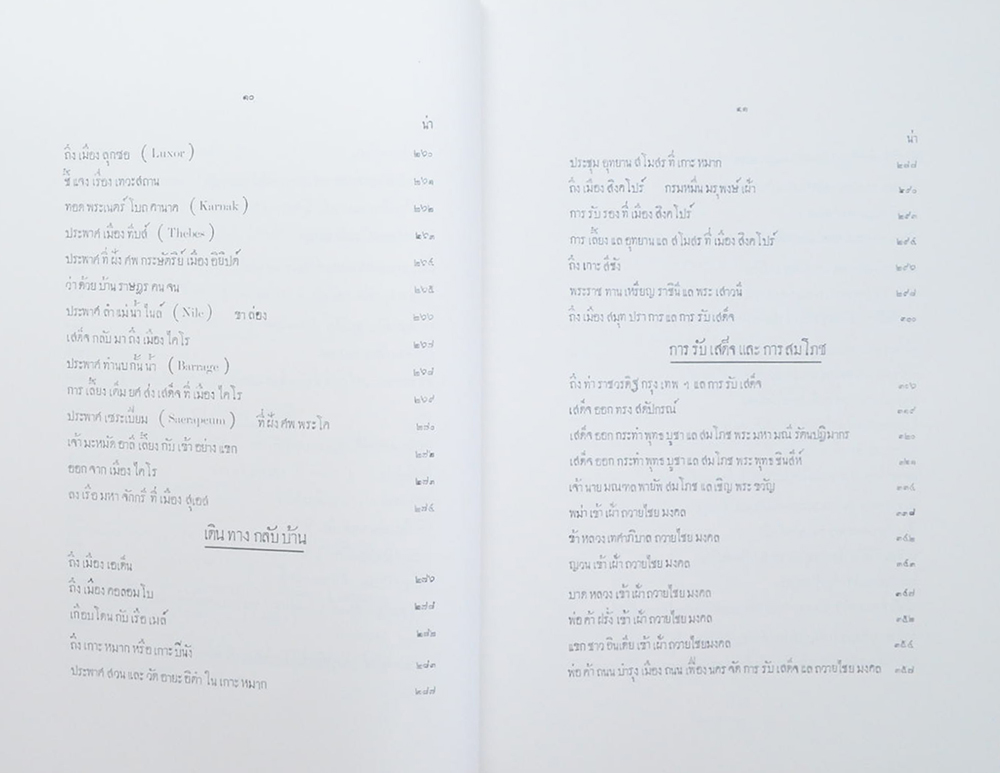 ๑๐
น่า
ถึง เมือง ลุกซอ ( Luxor ) ๒๖๐
ชี้ แจง เรื่อง เทวะสถาน ๒๖๑
ทอด พระเนตร์ โบถ คานาค ( Karnak ) ๒๖๒
ประพาศ เมือง ทีบส์ ( Thebes ) ๒๖๓
ประพาศ ที่ ฝัง ศพ กระษัตริย์ เมือง อิยิปต์ ๒๖๔
ว่า ด้วย บ้าน ราษฎร คน จน ๒๖๕
ประพาศ ลำ แม่ น้ำ ไนล์ ( Nile ) ขา ล่อง ๒๖๖
เสด็จ กลับ มา ถึง เมือง ไคโร ๒๖๗
ประพาศ ทำนบ กั้น น้ำ ( Barrage ) ๒๖๘
การ เลี้ยง เต็ม ยศ ส่ง เสด็จ ที่ เมือง ไคโร ๒๖๙
ประพาศ เซระเปี่ยม ( Saerapeum ) ที่ ฝัง ศพ พระ โค ๒๗๐
เจ้า มะหมัด อาลี เลี้ยง กับ เข้า อย่าง แขก ๒๗๒
ออก จาก เมือง ไคโร ๒๗๓
ลง เรือ มหา จักกรี ที่ เมือง สุเอส ๒๗๔
เดิน ทาง กลับ บ้าน
ถึง เมือง เอเด็น ๒๗๖
ถึง เมือง คอลอมโบ ๒๗๘
เกือบ โดน กับ เรือ เมล์
ถึง เกาะ หมาก หรือ เกาะ ปีนัง ๒๘๓
ประพาศ สวน และ วัด อายะ อิต๋ำ ใน เกาะ หมาก ๒๘๗
๑๑
น่า
ประชุม อุทยาน สโมสร ที่ เกาะ หมาก
ถึง เมือง สิงคโปร์ กรมหมื่น มรุพงษ์ เฝ้า ๒๙๐
การ รับ รอง ที่ เมือง สิงคโปร์ ๒๙๓
การ เลี้ยง แล อุทยาน แล สโมสร ที่ เมือง สิงคโปร์ ๒๙๕
ถึง เกาะ สีชัง ๒๙๖
พระราช ทาน เหรียญ ราชินี แล พระ เสาวนี ๒๙๗
ถึง เมือง สมุท ปรา การ แล การ รับ เสด็จ ๓๑๐
การ รับ เสด็จ และ การ สมโภช
ถึง ท่า ราชวรดิฐ กรุง เทพ ฯ แล การ รับ เสด็จ ๓๑๖
เสด็จ ออก ทรง สดัปกรณ์ ๓๑๙
เสด็จ ออก กระทำ พุทธ บูชา แล สมโภช พระ มหา มณี รัตนปฏิมากร ๓๒๐
เสด็จ ออก กระทำ พุทธ บูชา แล สมโภช พระ พุทธ ชินสีห์ ๓๒๑
เจ้า นาย มณฑล พายัพ สมโภช แล เชิญ พระ ขวัญ ๓๓๕
พม่า เข้า เฝ้า ถวาย ไชย มงคล ๓๓๘
ข้า หลวง เทศาภิบาล ถวาย ไชย มงคล ๓๔๒
ญวน เข้า เฝ้า ถวาย ไชย มงคล ๓๔๓
บาด หลวง เข้า เฝ้า ถวาย ไชย มงคล ๓๔๗
พ่อ ค้า ฝรั่ง เข้า เฝ้า ถวาย ไชย มงคล ๓๕๒
แขก ชาว อินเดีย เข้า เฝ้า ถวาย ไชยมงคล ๓๕๔
พ่อ ค้า ถนน บำรุง เมือง ถนน เฟื่อง นคร จัด การ รับ เสด็จ แล ถวาย ไชย มงคล ๓๕๗